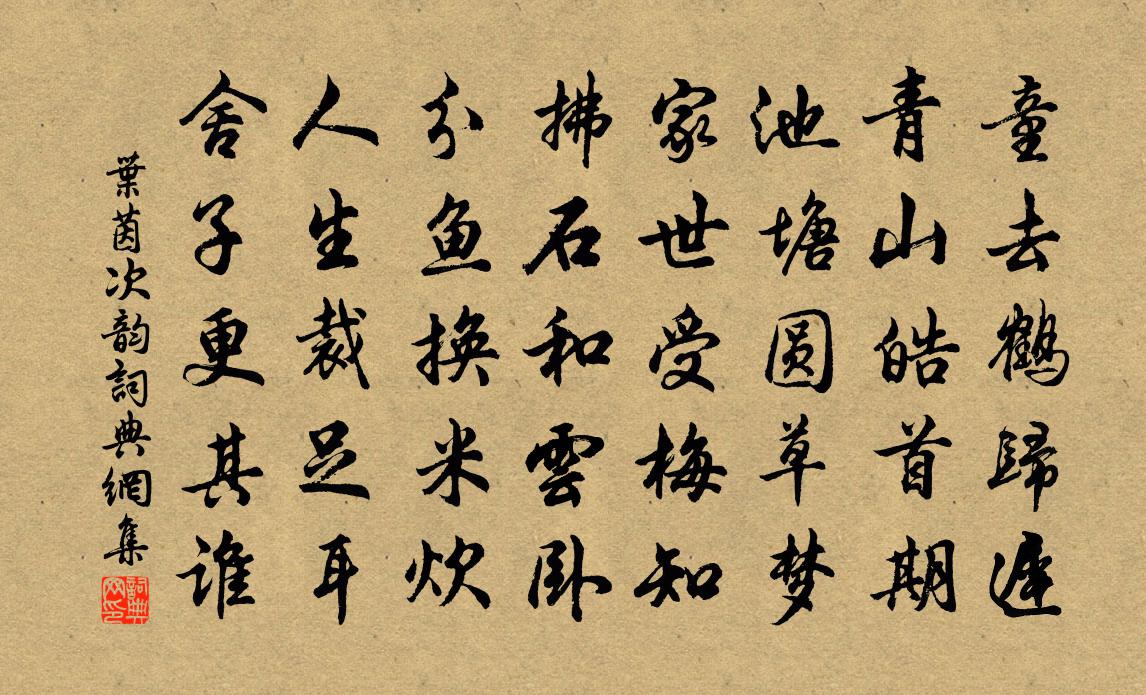 童去鶴歸遲
青山皓首期
池塘圓草梦
家世受梅知
拂石和雲卧
分魚換米炊
人生裁足耳
舍子更其谁
葉茵次韵詞典網集
詞典網印